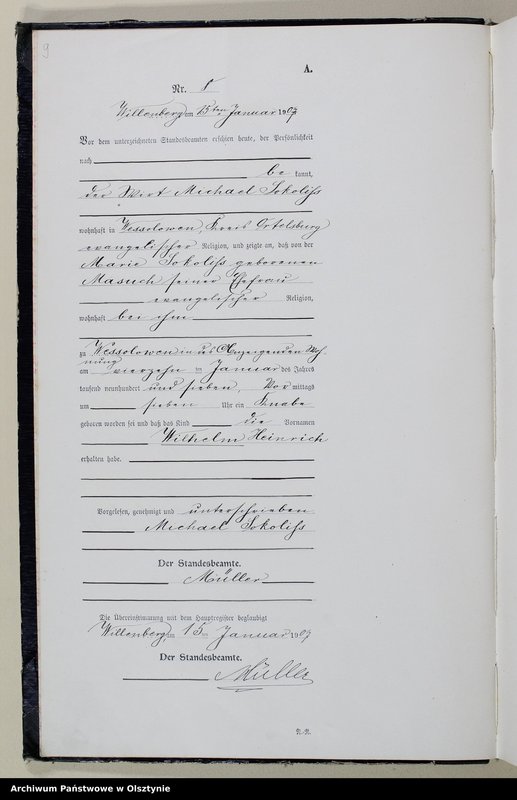 9
A.
Nr. 8
Willenberg, am 15ten Januar 1907
Vor dem unterzeichneten Standesbeamten erschien heute, der Persönlichkeit
nach
be kannt,
der Wirt Michael Sokoliß
wohnhaft in Wessolowen, Kreis Ortelsburg
evangelischer Religion, und zeigte an, daß von der
Marie Sokoliß geborenen
Masuch seiner Ehefrau
evangelischer Religion,
wohnhaft bei ihm
zu Wessolowen in des Anzeigenden Woh-
nung
am vierzehn ten Januar des Jahres
tausend neunhundert und sieben, Vor mittags
um sieben Uhr ein Knabe
geboren worden sei und daß das Kind die Vornamen
Wilhelm Heinrich
erhalten habe.
Vorgelesen, genehmigt und unterschrieben
Michael Sokoliß
Der Standesbeamte.
Müller
Die Übereinstimmung mit dem Hauptregister beglaubigt
Willenberg, am 15ten Januar 1907
Der Standesbeamte.
Müller
Archiwum Państwowe w Olsztynie